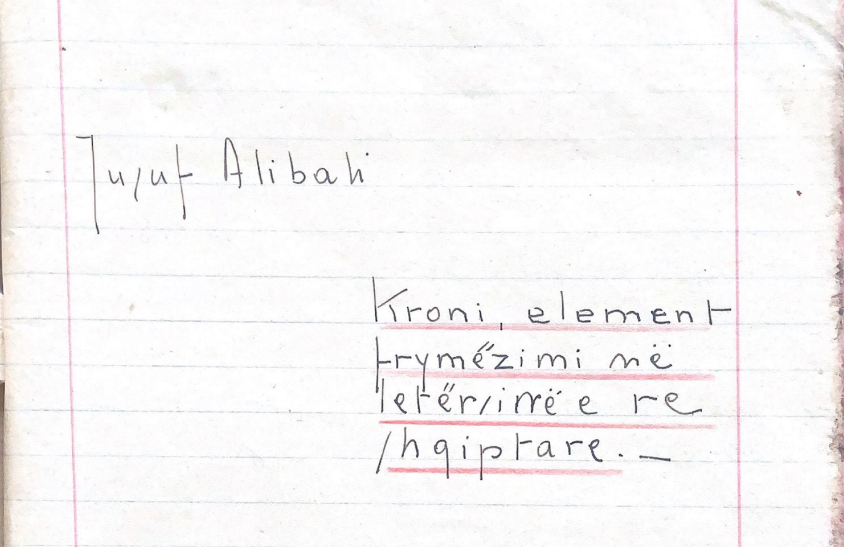 Jusuf Alibali
Kroni, element
frymëzimi në
letërsinë e re
shqiptare. —